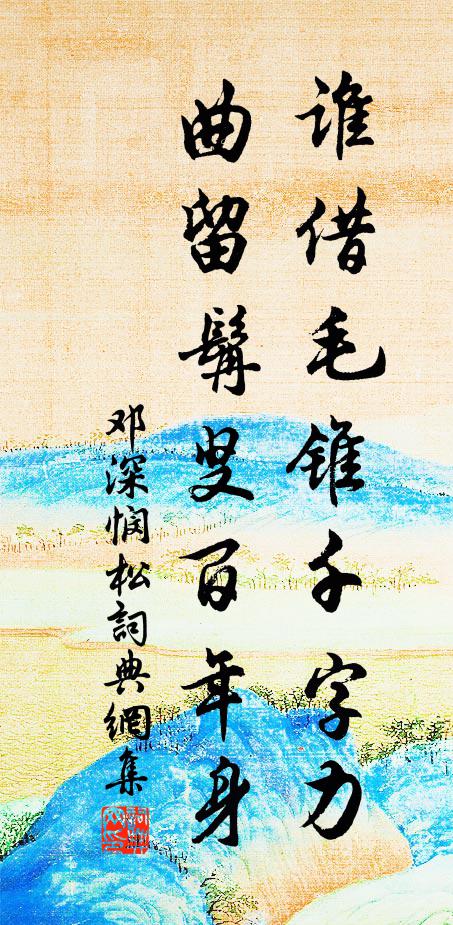 谁借毛锥千字力
曲留髯叟百年身
邓深悯松詞典網集